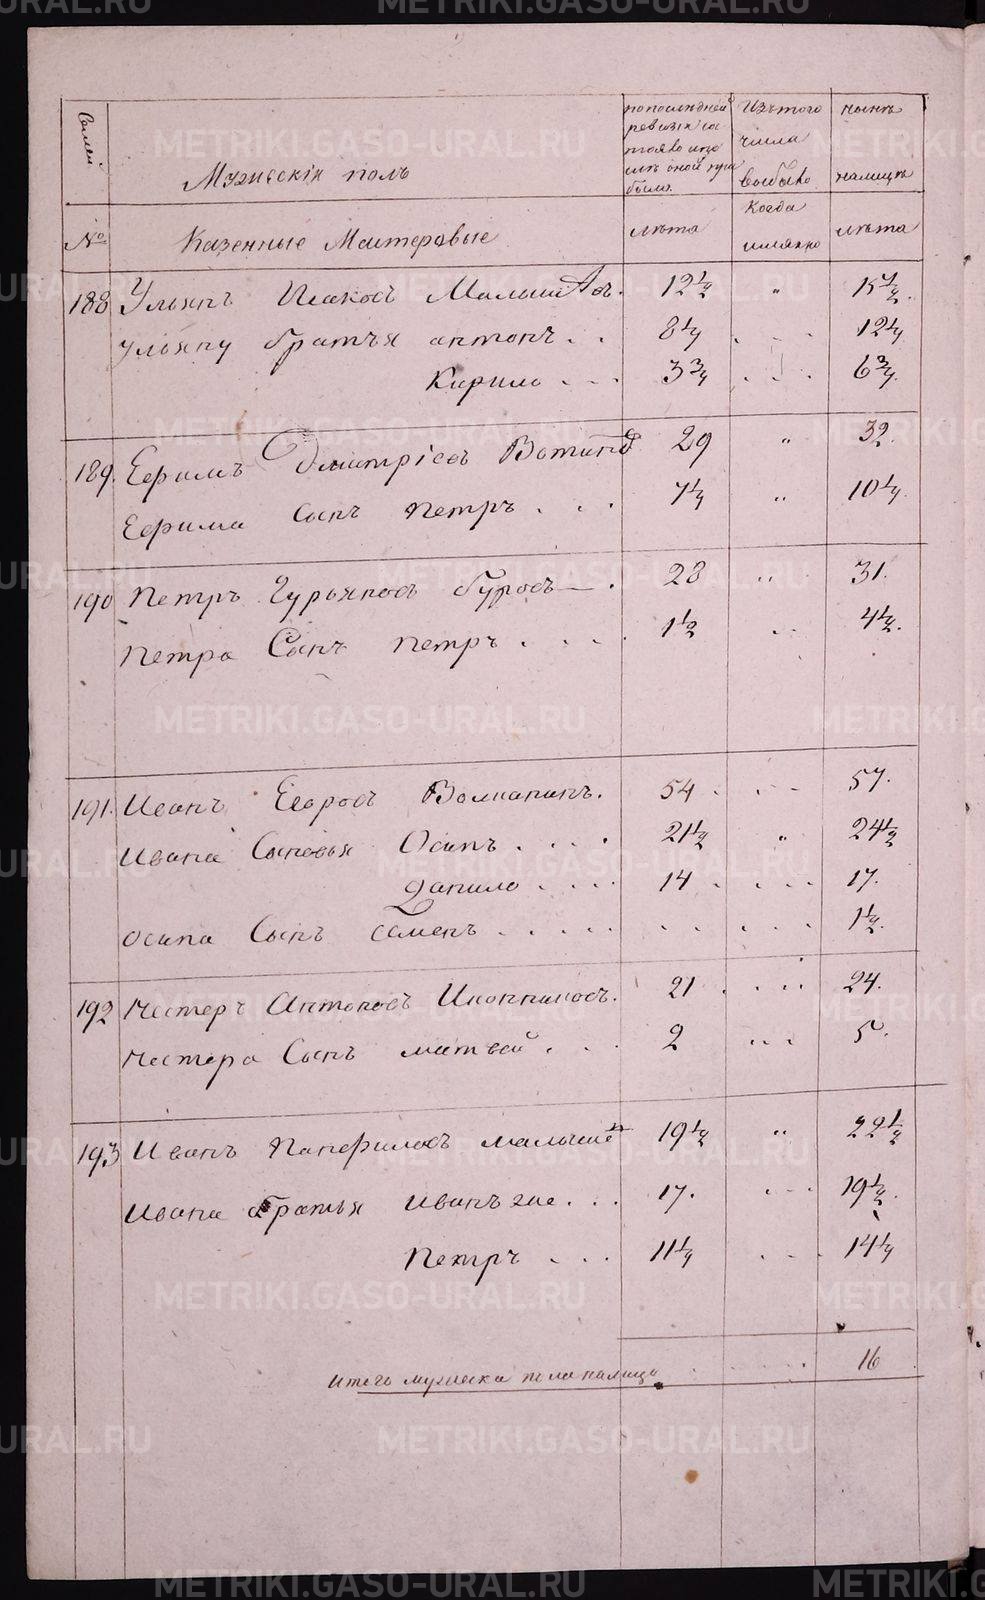 Семей
Мужескiй полъ
по последней ревизiи состояло и после оной прибыло.
Изъ того числа выбыло
ныне налицо
№
Казенные Мастеровые
лета
Когда именно
лета
188 Ульянъ Исаковъ Малышовъ. 12½ „ 15½.
Ульяну братья антонъ . . 8¼ . . . 12¼
Кирило . . . 3¾ . . . 6¾.
189. Ефимъ Дмитрiевъ Вотин 29 „ 32.
Ефима сынъ Петръ . . . 7¼ „ 10¼.
190 Петръ Гурьяновъ буровъ — . 28 „ 31.
Петра Сынъ Петръ . . . . 1½ . . 4½.
191. Иванъ Егоровъ Волынкинъ. 54 . . . . 57.
Ивана Сыновья Осипъ . . . . 21½ „ 24½
Данило . . . . 14 . . . . 17.
осипа Сынъ Семенъ . . . . . . . . . . . 1½.
192 Нестеръ Антоновъ Иконниковъ. 21 . . . . 24.
Нестера Сынъ матвей . . . 2 . . . 5.
193 Иванъ Панфиловъ малыше 19½ „ 22½
Ивана братья иванъ же . . . 17. . . . 19½.
Петръ . . . 11¼ . . . 14¼
итого мужеска пола налицо . . . . . 16
METRIKI.GASO-URAL.RU